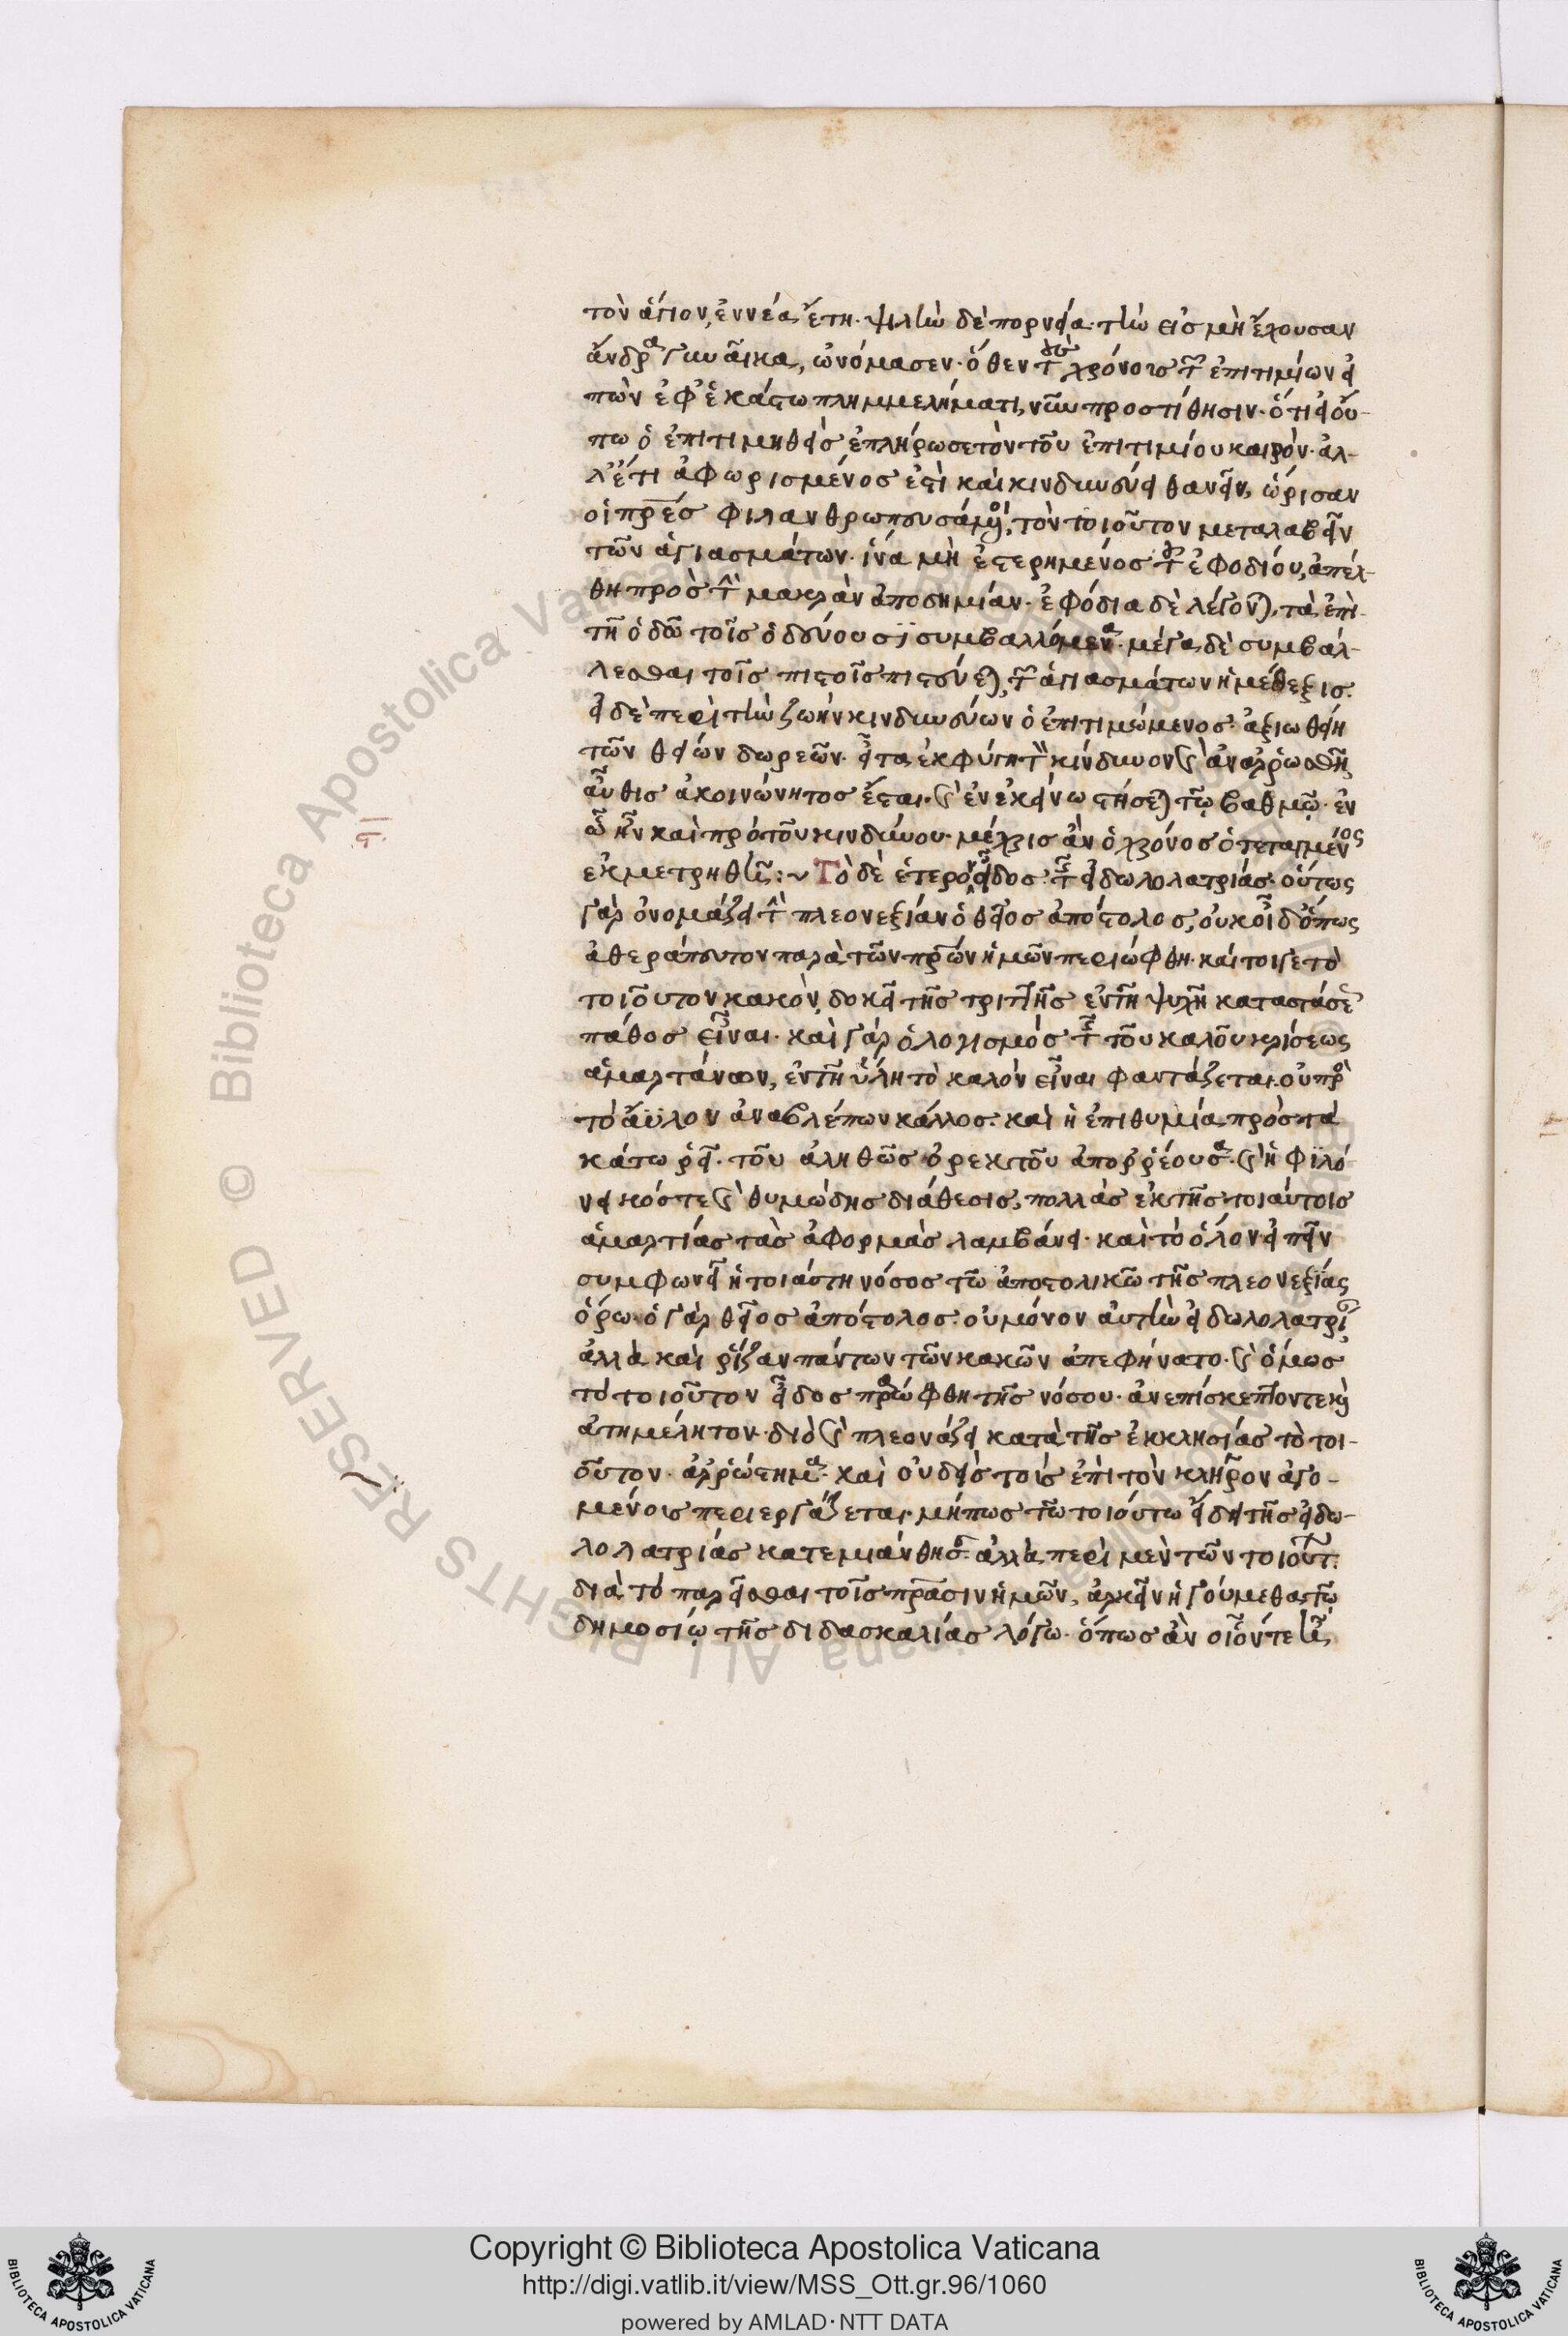 τὸν ἅγιον, ἐννέα ἔτη. ψιλὴν δὲ πορνείαν τὴν εἰς μὴ ἔχουσαν
ἄνδρα γυναῖκα, ὠνόμασεν. ὅθεν τοὺς χρόνοις τῶν ἐπιτιμίων εἰ
πὼν ἐφ' ἑκάστω πλημμελήματι, νῦν προστίθησιν. ὅτι εἰ οὔ-
πω ὁ ἐπιτιμηθεὶς ἐπλήρωσε τὸν τοῦ ἐπιτιμίου καιρὸν. ἀλ-
λ' ἔτι ἀφωρισμένος ἐστὶ καὶ κινδυνεύει θανεῖν, ὥρισαν
οἱ πρες φιλανθρωπευσάμενοι, τὸν τοιοῦτον μεταλαβεῖν
τῶν ἁγιασμάτων. ἵνα μὴ ἐστερημένος τοῦ ἐφοδίου, ἀπέλ-
θη πρὸς τὴν μακρὰν ἀποδημίαν. ἐφόδια δὲ λέγονται, τὰ ἐπὶ
τῆ ὁδῶ τοῖς ὁδεύουσι συμβαλλόμενα. μέγα δὲ συμβάλ-
λεσθαι τοῖς πιστοῖς πιστεύεται, τῶν ἁγιασμάτων ἡ μέθεξις.
εἰ δὲ περὶ τὴν ζωὴν κινδυνεύων ὁ ἐπιτιμώμενος ἀξιωθείη
τῶν θείων δωρεῶν. εἶτα ἐκφύγη τὸν κίνδυνον καὶ ἀναρρωσθῆ
αὖθις ἀκοινώνητος ἔσται. καὶ ἐν ἐκείνω στήσεται τῷ βαθμῷ. ἐν
ᾧ ἦν καὶ πρὸ τοῦ κινδύνου. μέχρις ἂν ὁ χρόνος ὁ τεταγμένος
ἐκμετρηθῆ:~ Τὸ δὲ ἕτερον εἶδος τῆς εἰδωλολατρίας. οὕτως
γὰρ ὀνομάζει τὴν πλεονεξίαν ὁ θεῖος ἀπόστολος, οὐκ οἶδ' ὅπως
ἀθεράπευτον παρὰ τῶν πρων ἡμῶν περιώφθη. καίτοι γε τὸ
τοιοῦτον κακὸν, δοκεῖ τῆς τριττῆς ἐν τῆ ψυχῆ καταστάσεως
πάθος εἶναι. καὶ γὰρ ὁ λογισμὸς τῆς τοῦ καλοῦ κρίσεως
ἁμαρτάνων, ἐν τῆ ὕλη τὸ καλὸν εἶναι φαντάζεται. οὐ πρὸς
τὸ ἄϋλον ἀναβλέπων κάλλος. καὶ ἡ ἐπιθυμία πρὸς τὰ
κάτω ῥεῖ. τοῦ ἀληθῶς ὀρεκτοῦ ἀπορρέουσα. καὶ ἡ φιλό
νεικός τε καὶ θυμώδης διάθεσις, πολλὰς ἐκ τῆς τοιαύτοις
ἁμαρτίας τὰς ἀφορμὰς λαμβάνει. καὶ τὸ ὅλον εἰπεῖν
συμφωνεῖ ἡ τοιαύτη νόσος τῶ ἀποστολικῶ τῆς πλεονεξίας
ὅρω. ὁ γὰρ θεῖος ἀπόστολος οὐ μόνον αὐτὴν εἰδωλολατρίαν
ἀλλὰ καὶ ῥίζαν πάντων τῶν κακῶν ἀπεφήνατο. καὶ ὅμως
τὸ τοιοῦτον εἶδος παρώφθη τῆς νόσου. ἀνεπίσκεπτον τε καὶ
ἀτημέλητον. διὸ καὶ πλεονάζει κατὰ τῆς ἐκκλησίας τὸ τοι-
οῦτον ἀρρώστημα. καὶ οὐδεὶς τοὺς ἐπὶ τὸν κλῆρον ἀγο-
μένοις περιεργάζεται. μήπως τῶ τοιούτω εἴδει τῆς εἰδω-
λολατρίας κατεμιάνθησαν. ἀλλὰ περὶ μὲν τῶν τοιούτων
διὰ τὸ παρεῖσθαι τοῖς πρασιν ἡμῶν, ἀρκεῖν ἡγούμεθα τῶ
δημοσίῳ τῆς διδασκαλίας λόγω. ὅπως ἂν οἷόν τε ᾖ,
Copyright © Biblioteca Apostolica Vaticana
http://digi.vatlib.it/view/MSS_Ott.gr.96/1060
powered by AMLAD·NTT DATA